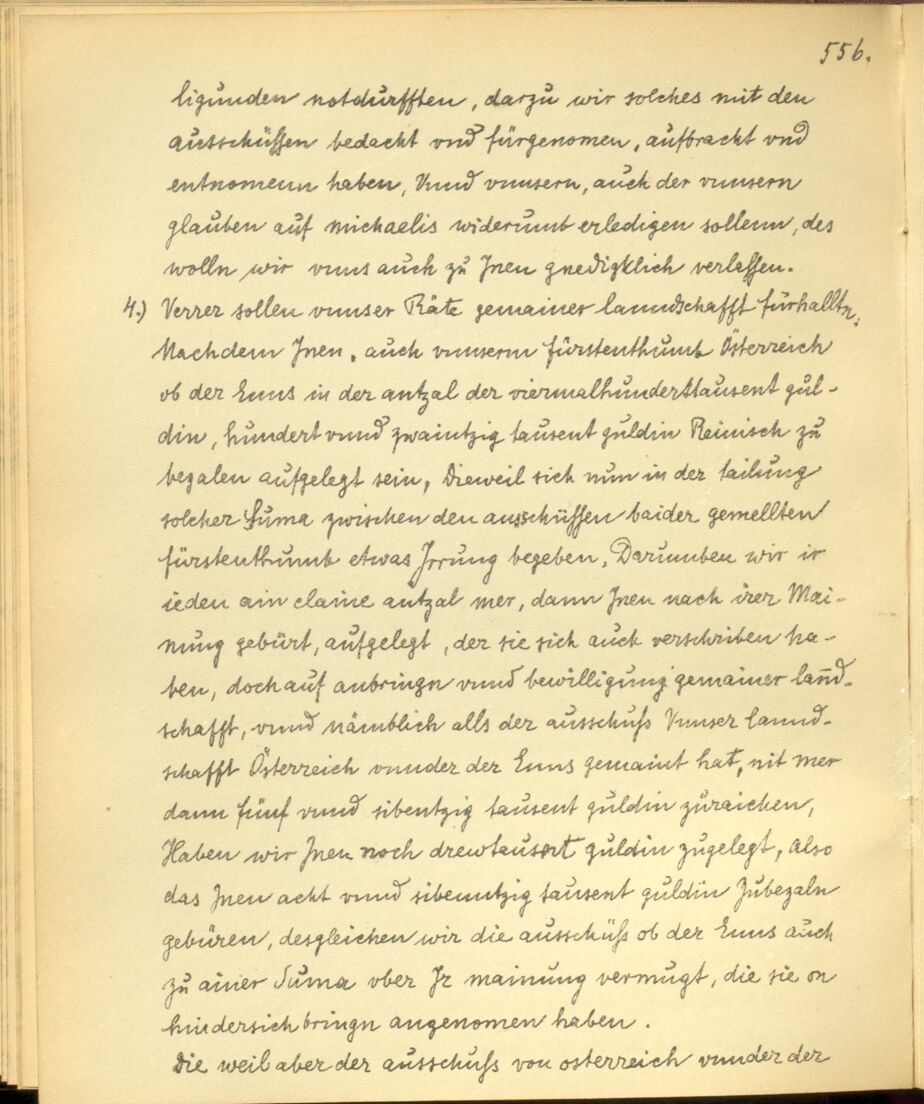 556.
ligunden notdurfften, darzu wir solches mit den
ausschüssen bedacht vnd fürgenomen, aufbracht vnd
entnomenn haben, Vnnd vnnsern, auch der vnnsern
glauben auf michaelis widerumb erledigen sollenn, des
wolln wir vnns auch zu Jnen gnedigklich verlassen.
4.) Verrer sollen vnnser Räte gemainer lanndschafft fürhalltn:
Nachdem Jnen, auch vnnserm fürstenthumb Österreich
ob der Enns in der antzal der viermalhunderttausent gul-
din, hundert vnnd zwaintzig tausent guldin Reinisch zu
bezalen aufgelegt sein, Dieweil sich nun in der tailung
solcher Suma zwischen den ausschüssen baider gemellten
fürstenthumb etwas Jrrung begeben, Darumben wir ir
ieden ain claine antzal mer, dann Jnen nach irer Mai-
nung gebürt, aufgelegt, der sie sich auch verschriben ha-
ben, doch auf anbringn vnnd bewilligung gemainer lannd-
schafft, vnnd nämblich alls der ausschuss Vnnser lannd-
schafft Österreich vnnder der Enns gemaint hat, nit mer
dann fünf vnnd sibentzig tausent guldin zuraichen,
Haben wir Jnen noch drewtausent guldin zugelegt, Also
das Jnen acht vnnd sibenntzig tausent guldin Zubezaln
gebüren, desgleichen wir die ausschüss ob der Enns auch
zu ainer Suma vber Jr mainung vermugt, die sie on
hindersichbringn angenomen haben.
Die weil aber der ausschuss von osterreich vnnder der